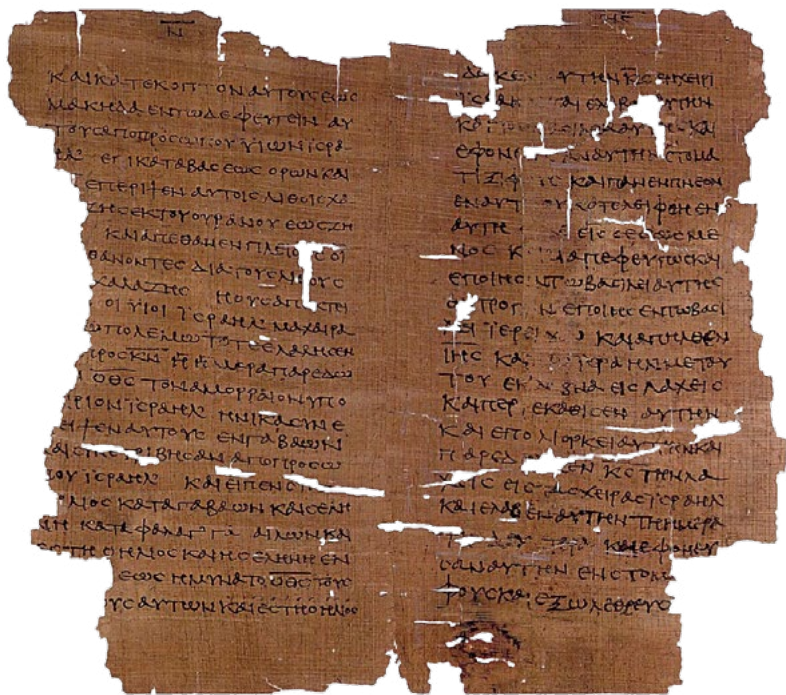 Ν
ΚΑΙΚΑΤΕΚΟΠΤΟΝΑΥΤΟΥϹΕΩϹ
ΜΑΚΗΔΑΕΝΤΩΔΕΦΕΥΓΕΙΝΑΥ
ΤΟΥϹΑΠΟΠΡΟϹΩΠΟΥΥΙΩΝΙϹΡΑ
ΗΛ ΕΠΙΚΑΤΑΒΑϹΕΩϹΟΡΩΝΚΑΙ
ΕΠΕΡΙΨΕΝΑΥΤΟΙϹΛΙΘΟΙϹΧΑ
ΖΗϹΕΚΤΟΥΟΥΡΑΝΟΥΕΩϹΖΗ
ΚΑΙΑΠΕΘΑΝΕΝΠΛΕΙΟΥϹΟΙ
ΘΑΝΟΝΤΕϹΔΙΑΤΟΥϹΛΙΘΟΥϹ
ΧΑΛΑΖΗϹ ΗΟΥϹΑΠΕΚΤΕΙ
ΟΙΥΙΟΙ ΙϹΡΑΗΛ ΜΑΧΑΙΡΑ
ΩΠΟΛΕΜΩΤΟΤΕΕΛΑΛΗϹΕΝ
ΠΡΟϹΚΝ ΗΗΜΕΡΑΠΑΡΕΔΩ
ΟΘϹ ΤΟΝΑΜΟΡΡΑΙΟΝΥΠΟ
ΙΡΙΟΝΙϹΡΑΗΛ ΗΝΙΚΑϹΥΝΕ
ΕΙΨΕΝΑΥΤΟΥϹ ΕΝΓΑΒΑΩΝΚΙ
ΑΙϹΥΝΕΤΡΙΒΗϹΑΝΑΠΟΠΡΟϹΩ
ΠΟΥΙϹΡΑΗΛ ΚΑΙΕΙΠΕΝ
ΛΙΟϹΚΑΤΑΓΑΒΑΩΝΚΑΙϹΕΛΗ
ΝΗ ΚΑΤΑΦΑΛΑΓΓΑ ΑΙΛΩΝΚΑΙ
ΕϹΤΗΟΗΛΙΟϹΚΑΙΗϹΕΛΗΝΗΕΝ
ΕΩϹΗΜΥΝΑΤΟΟΘϹΤΟΥϹ
ΟΥϹΑΥΤΩΝΚΑΙΕϹΤΗΟΗΛΙΟϹ
ΔΩΚΕΝ ΑΥΤΗΝΚϹΕΙΧΕΙΡΙ
ΙϹΡΑΗΛ ΚΑΙΕΛΑΒΟΝΑΥΤΗΝ
ΚΑΙ ΚΑΙ
ΕΦΟΝΕΥϹΑΝΑΥΤΗΝϹΤΟΜΑ
ΤΙΞΙΦΟΥϹ ΚΑΙΠΑΝΕΝΠΝΕΟΝ
ΕΝΑΥΤΗ ΟΥΚΑΤΕΛΕΙΦΘΗΕΝ
ΑΥΤΗ ΕΙϹϹΕϹΩϹΜΕ
ΝΟϹ ΚΑΙΔΙΑΠΕΦΕΥΓΩϹΚΑΙ
ΕΠΟΙΗϹΕΝΤΩΒΑϹΙΛΕΙΑΥΤΗϹ
ΟΝΤΡΟΠΟΝΕΠΟΙΗϹΕΝΤΩΒΑϹΙ
ΛΕΙΙΕΡΕΙΧΩ ΚΑΙΑΠΗΛΘΕΝ
ΙΗϹ ΚΑΙ ΙϹΡΑΗΛΜΕΤΟΥ
ΤΟΥ ΕΚΛΕΒΝΑΕΙϹΛΑΧΕΙϹ
ΚΑΙΠΕΡΙΕΚΑΘΙϹΕΝ ΑΥΤΗΝ
ΚΑΙΕΠΟΛΙΟΡΚΕΙΑΥΤΗΝΚΑΙ
ΠΑΡΕΔΩΚΕΝ ΚϹΤΗΝΛΑ
ΧΕΙϹ ΕΙϹΤΑϹΧΕΙΡΑϹΙϹΡΑΗΛ
ΚΑΙΕΛΑΒΕΝΑΥΤΗΝΤΗΗΜΕΡΑ
ΚΑΙΕΦΟΝΕΥ
ϹΑΝΑΥΤΗΝ ΕΝϹΤΟΜΑ
ΦΟΥϹΚΑΙΕΞΩΛΕΘΡΕΥϹ